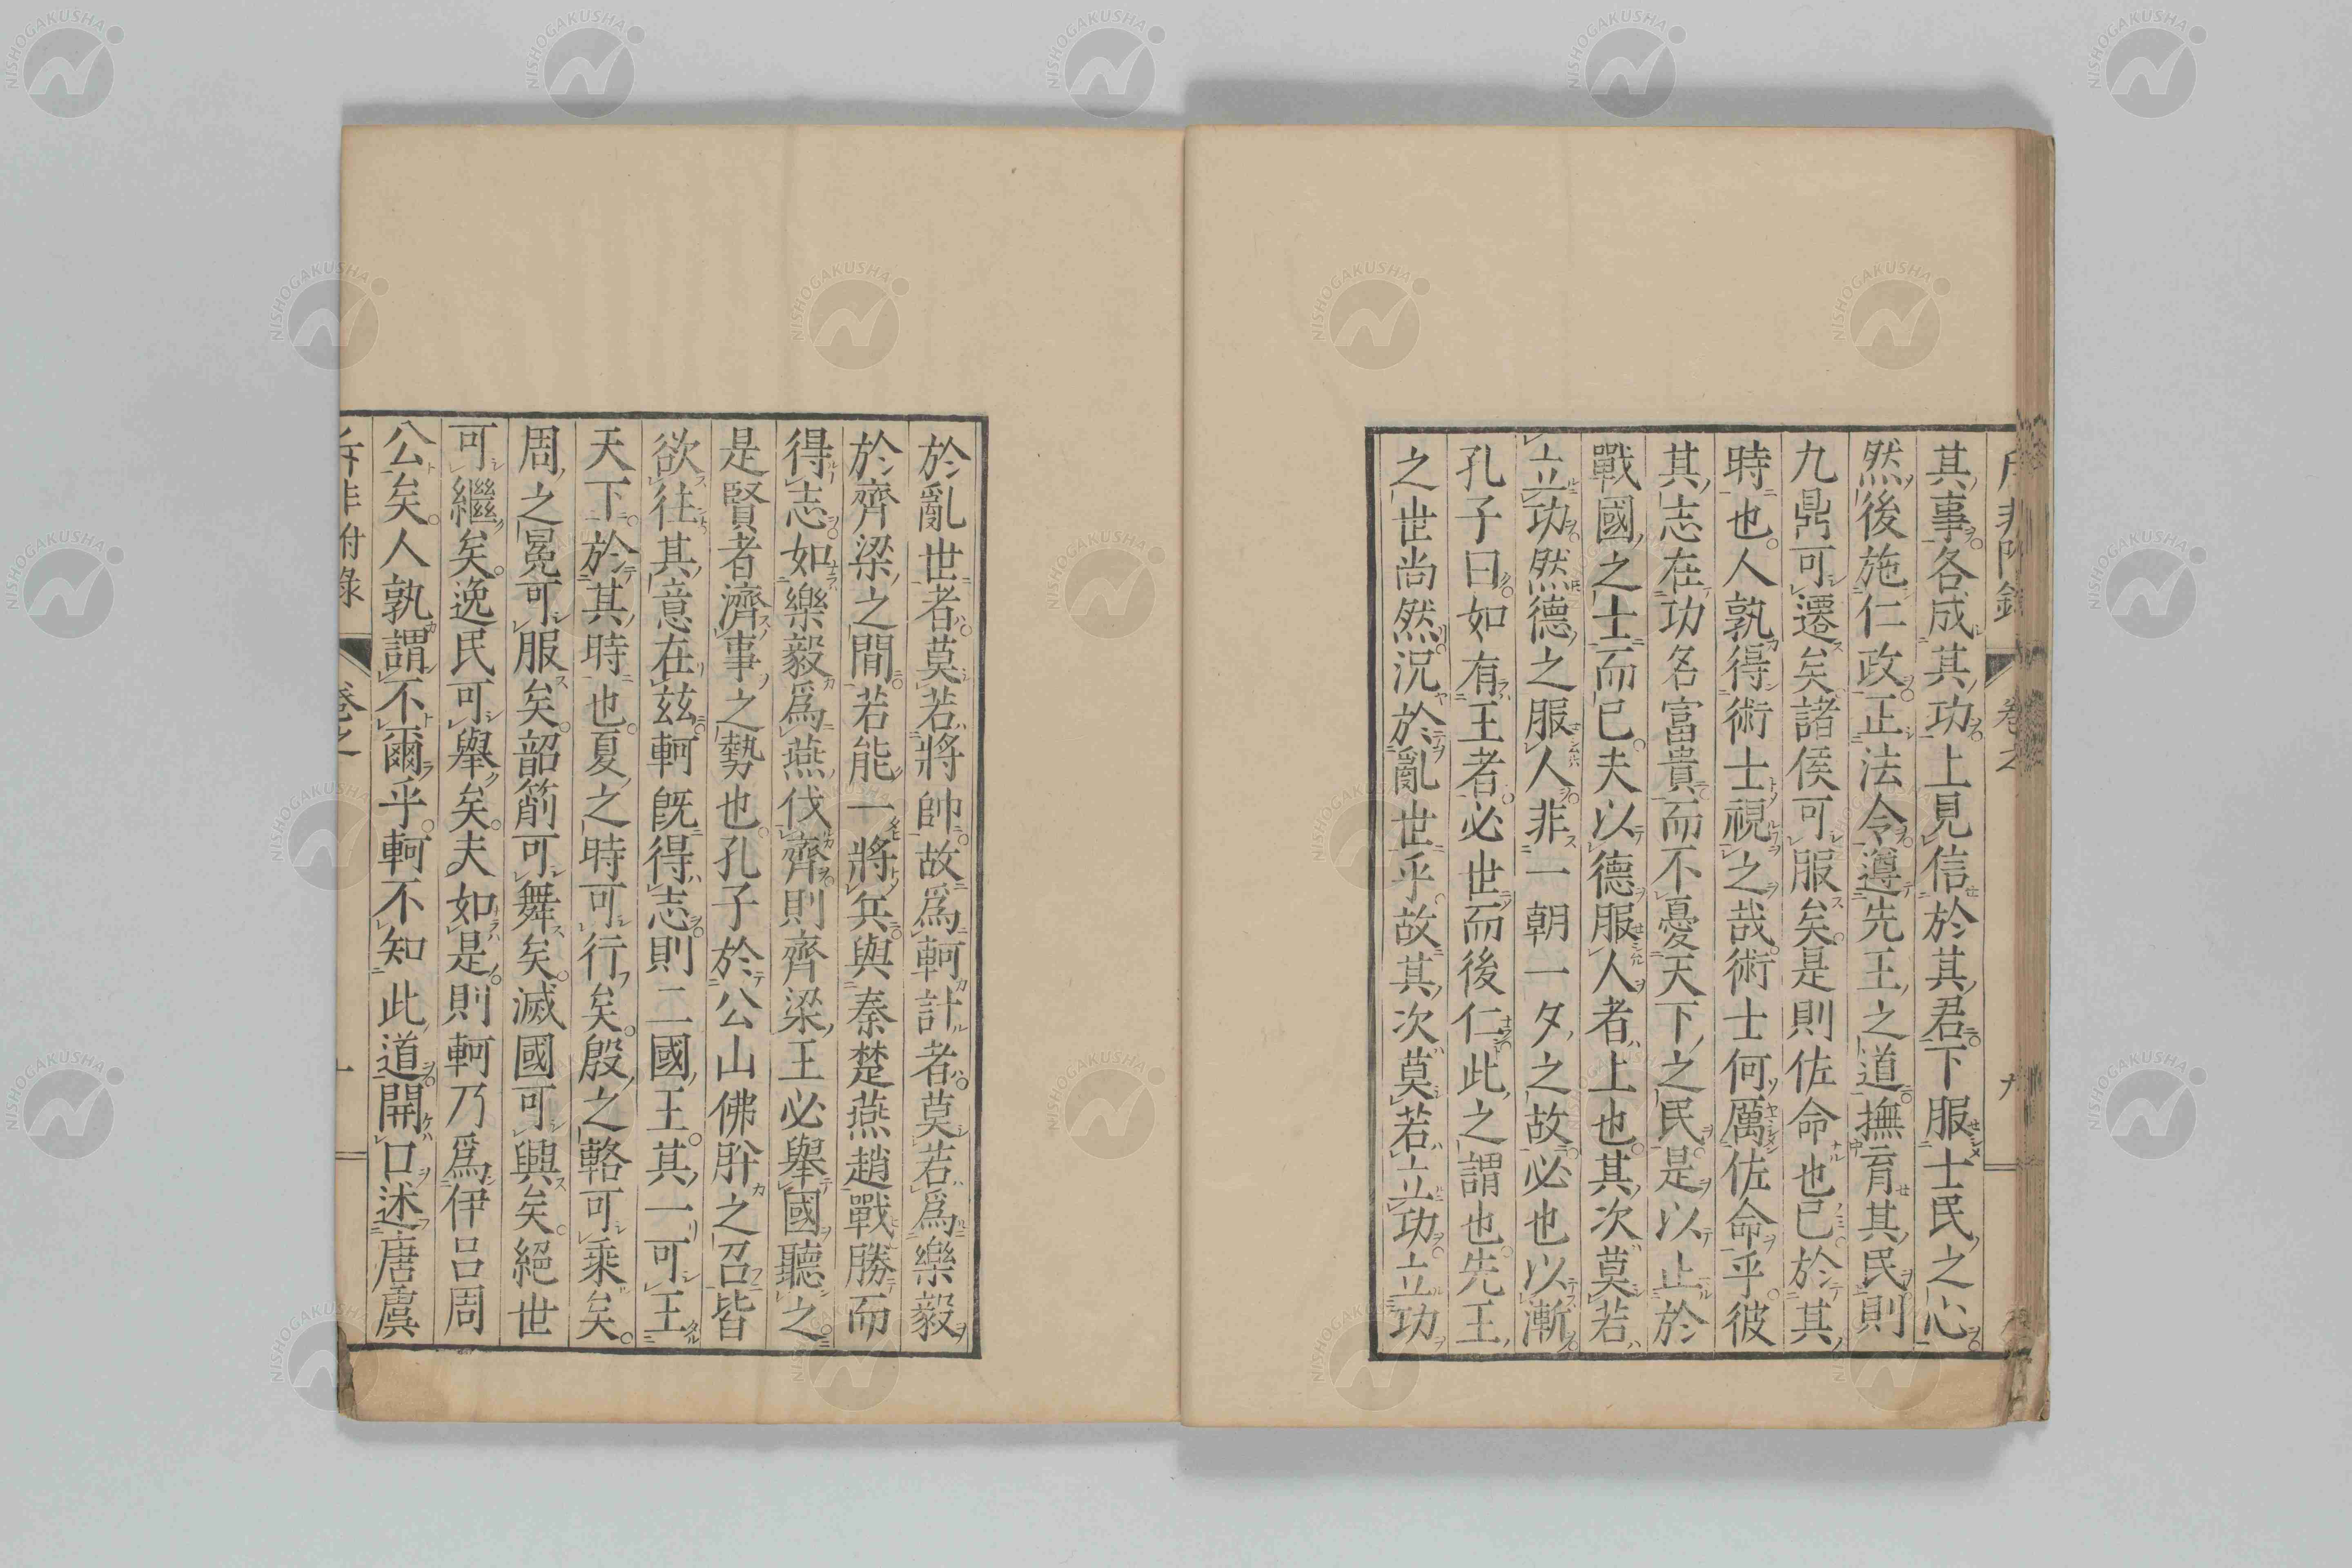 其事各成其功上見信於其君下服士民之心
然後施仁政正法令遵先王之道撫育其民則
九鼎可遷矣諸侯可服矣是則佐命也已於其
時也人孰得術士視之哉術士何厲佐命乎彼
其志在功名富貴而不憂天下之民是以止於
戰國之士而已夫以德服人者上也其次莫若
立功然德之服人非一朝一夕之故必也以漸
孔子曰如有王者必世而後仁此之謂也先王
之世尚然況於亂世乎故其次莫若立功立功
於亂世者莫若將帥故爲軻計者莫若爲樂毅
於齊梁之間若能一將兵與秦楚燕趙戰勝而
得志如樂毅爲燕伐齊則齊梁王必舉國聽之
是賢者濟事之勢也孔子於公山佛肸之召皆
欲往其意在茲軻既得志則二國王其一可王
天下於其時也夏之時可行矣殷之輅可乘矣
周之冕可服矣韶箾可舞矣滅國可興矣絕世
可繼矣逸民可舉矣夫如是則軻乃爲伊呂周
公矣人孰謂不爾乎軻不知此道開口述唐虞
NISHOGAKUSHA